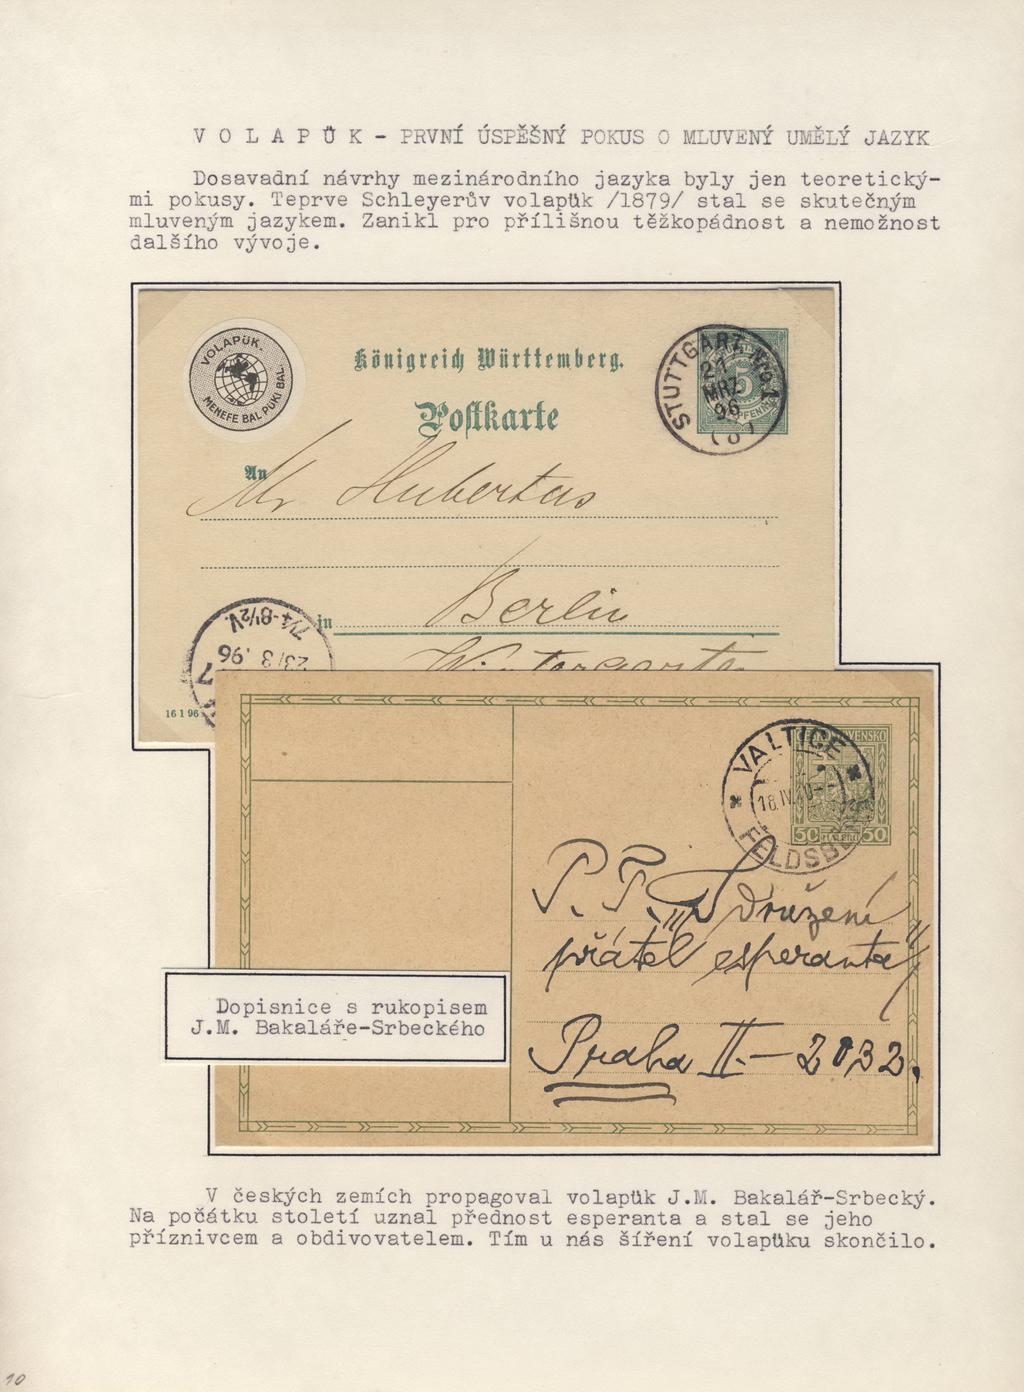 V O L A P Ü K - PRVNÍ ÚSPĚŠNÝ POKUS O MLUVENÝ UMĚLÝ JAZYK
Dosavadní návrhy mezinárodního jazyka byly jen teoretický-
mi pokusy. Teprve Schleyerův volapük /1879/ stal se skutečným
mluveným jazykem. Zanikl pro přílišnou těžkopádnost a nemožnost
dalšího vývoje.
VOLAPÜK.
MENEFE BAL PÜKI BAL
Königreich Württemberg.
Postkarte
STUTTGART Nro. 1
21
MRZ
96
5
PFENNIG
An
Mr Hubertus
in
Berlin
7¼-8½V.
23/3 .96
16 1 96
VALTICE
FELDSBERG
18.IV.
ČESKOSLOVENSKO
50 HALÉŘŮ 50
P. T. "Sdružení
přátel esperanta"
Praha II.- 2032.
Dopisnice s rukopisem
J.M. Bakaláře-Srbeckého
V českých zemích propagoval volapük J.M. Bakalář-Srbecký.
Na počátku století uznal přednost esperanta a stal se jeho
příznivcem a obdivovatelem. Tím u nás šíření volapüku skončilo.
10